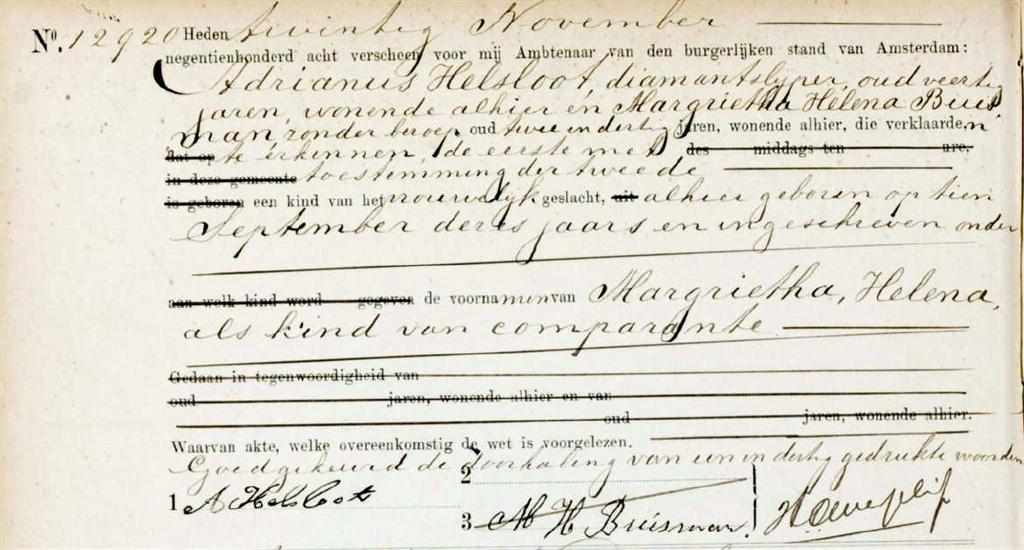 No. 12920 Heden twintig November
negentienhonderd acht verscheen voor mij Ambtenaar van den burgerlijken stand van Amsterdam:
Adrianus Helsloot, diamantslyper, oud veertig
jaren, wonende alhier en Margrietha Helena Buis
man, zonder beroep oud twee en dertig jaren, wonende alhier, die verklaarden
dat op te erkennen, de eerste met des middags ten ure,
in deze gemeente toestemming der tweede
is geboren een kind van het vrouwelyk geslacht, uit alhier geboren op tien
September dezes jaars en ingeschreven onder
aan welk kind word gegeven de voornamen van Margrietha, Helena,
als kind van comparante
Gedaan in tegenwoordigheid van
oud jaren, wonende alhier en van
oud jaren, wonende alhier.
Waarvan akte, welke overeenkomstig de wet is voorgelezen.
Goedgekeurd de doorhaling van een en dertig gedrukte woorden
2
1 A Helsloot
3 M H Buisman